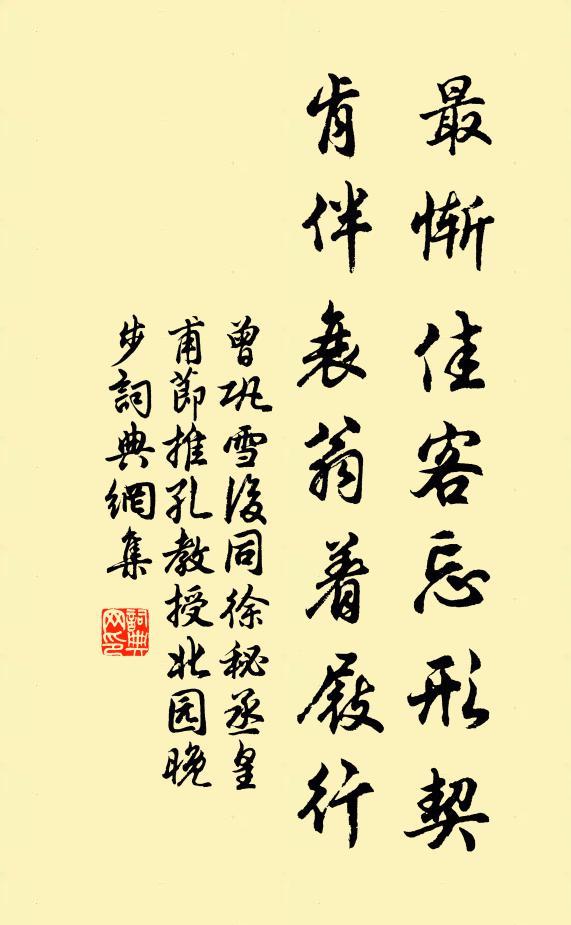 最慚佳客忘形契
肯伴衰翁着屐行
曾巩雪後同徐秘丞皇
甫節推孔教授北园晚
步詞典網集
詞典
网印